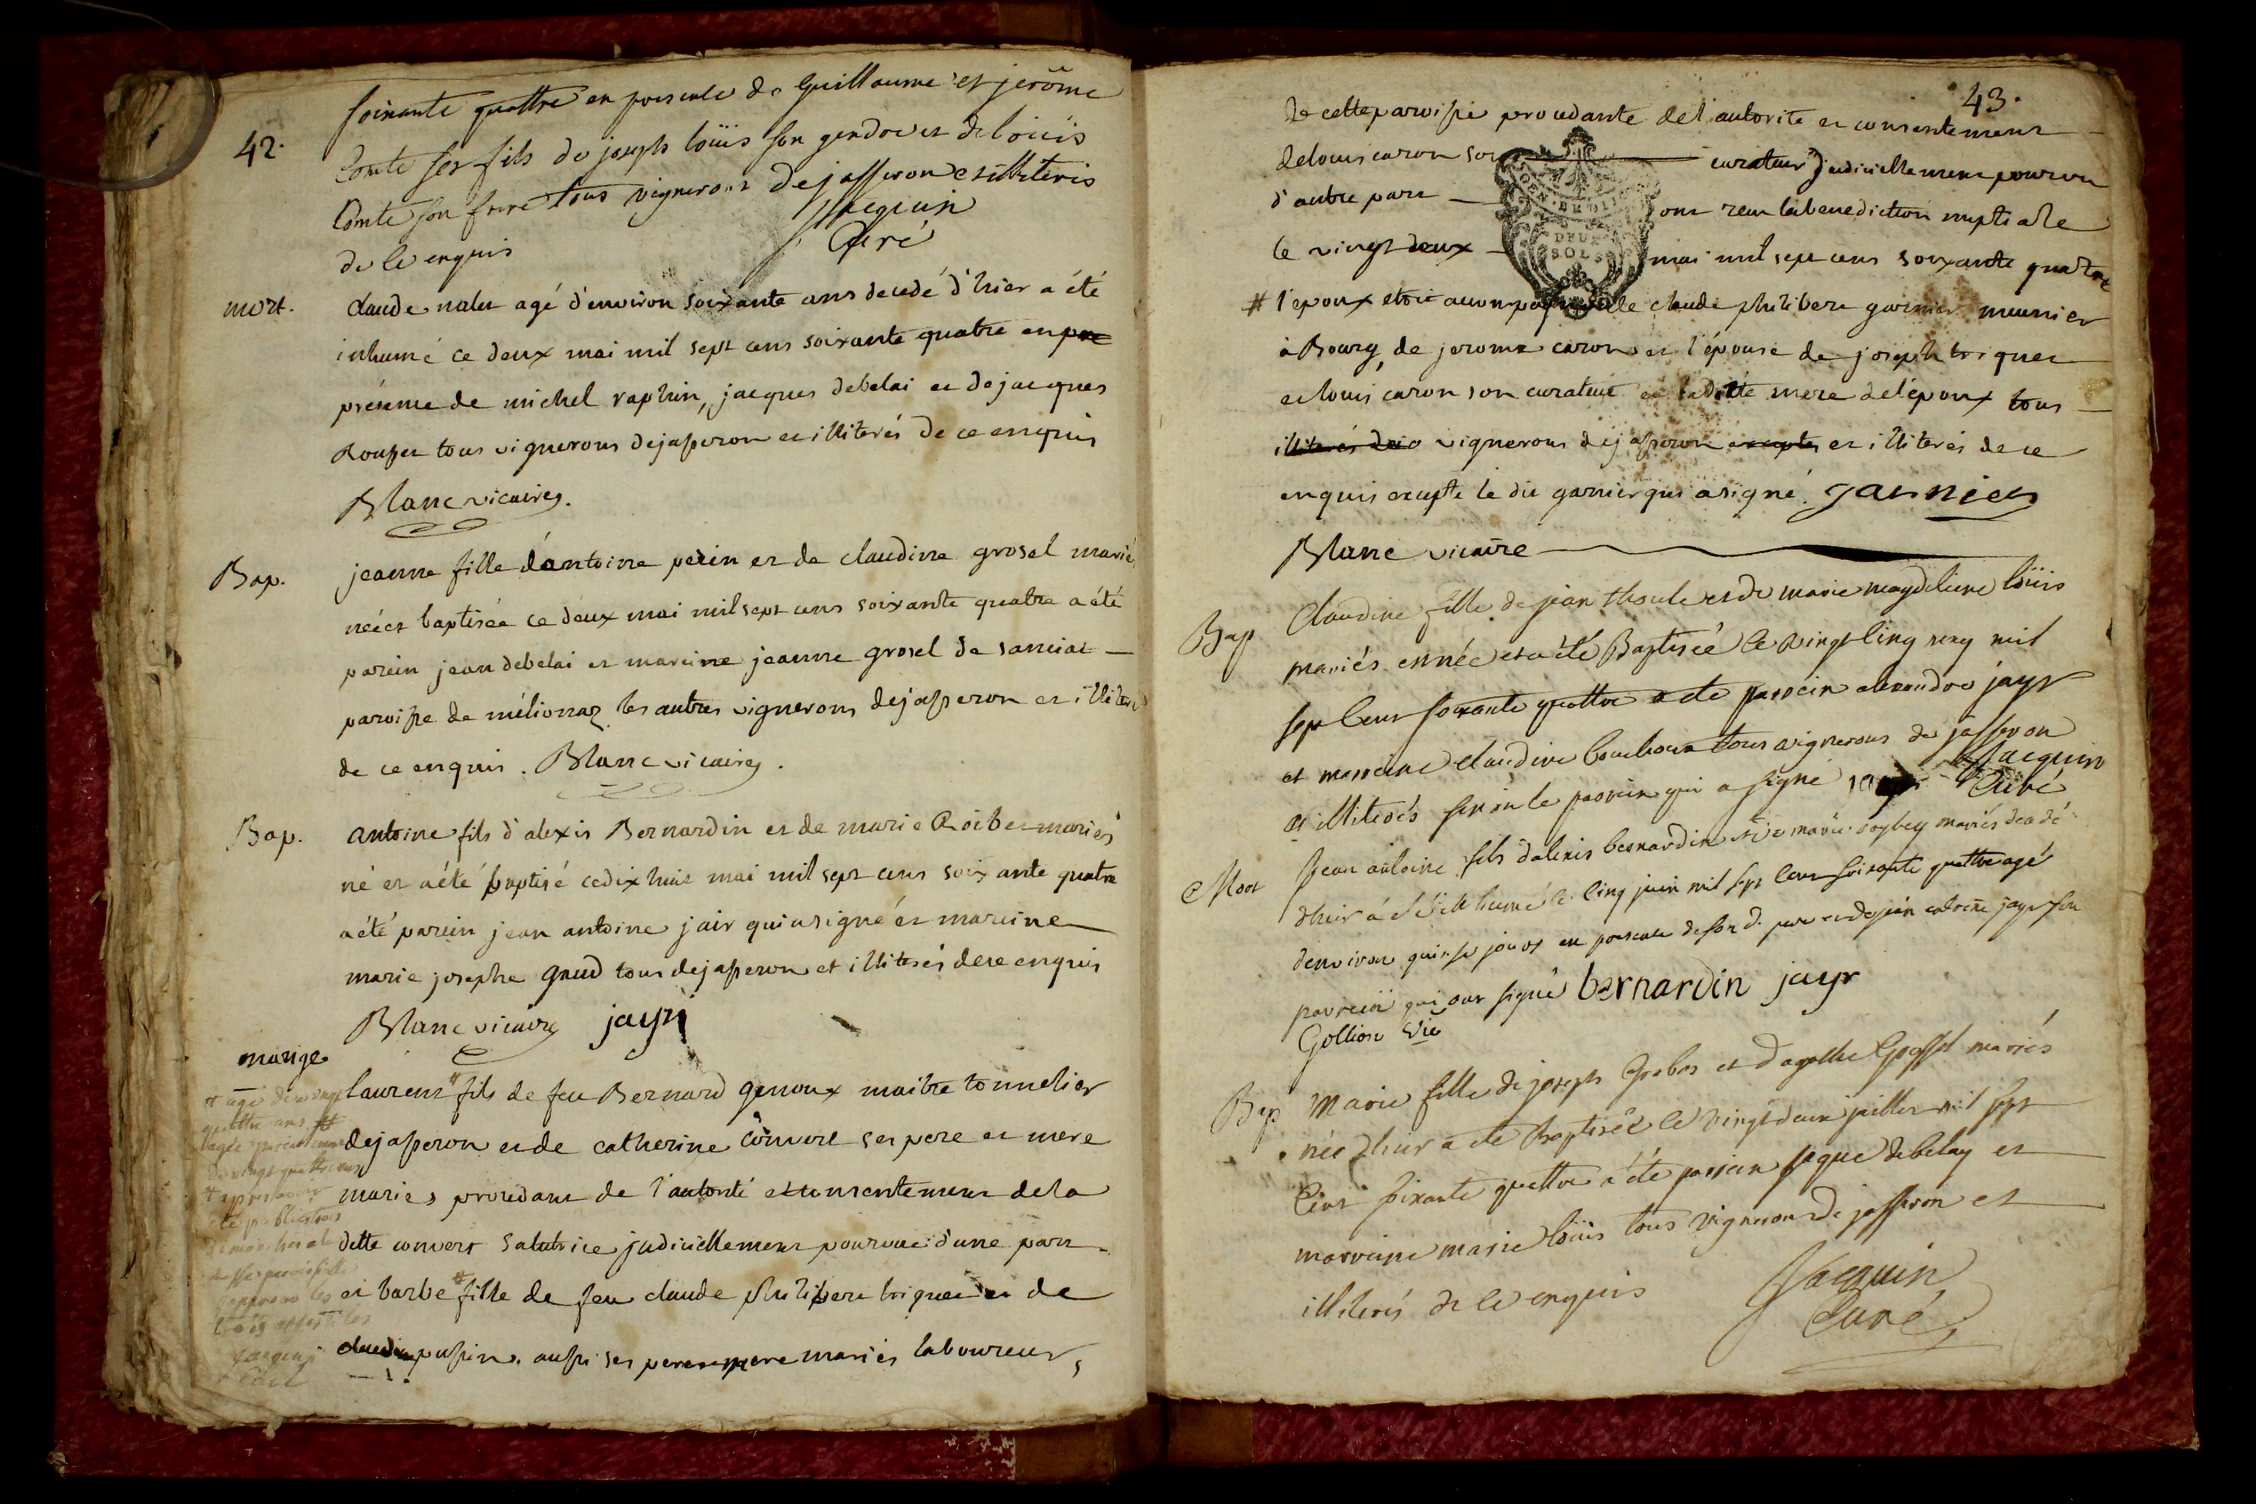 42.
soixante quattre en presence de Guillaume et jerôme
Comte ses fils de joseph loüis son gendre et de loüis
Comte son frere tous vignerons de jasseron et illiterés
de ce enquis Jacquin
Curé
mort.
claude nalet agé d'environ soixante ans decedé d'hier a été
inhumé ce deux mai mil sept cens soixante quatre en pre
présence de michel raphin, jacques debelai et de jacques
Rouset tous vignerons de jasseron et illiterés de ce enquis
Blanc vicaire.
Bap.
jeanne fille d'antoine perin et de claudine grosel mariés
née et baptisée ce deux mai mil sept cens soixante quatre a été
parein jean debelai et mareine jeanne grosel de sanciat
paroisse de mélionnaz les autres vignerons de jasseron et illiterés
de ce enquis. Blanc vicaire.
Bap.
antoine fils d'alexis Bernardin et de marie Roibet mariés
né et a été baptisé ce dix huit mai mil sept cens soixante quatre
a été parein jean antoine jair qui a signé et mareine
marie josephe gaud tous de jasseron et illiterés de ce enquis
Blanc vicaire jayr
marige
laurent # fils de feu Bernard genoux maitre tonnelier
de jasseron et de catherine convert ses pere et mere
mariés procedant de l'autorité et consentement de la
ditte convert sa tutrice judiciellement pourvue d'une part
et barbe # fille de feu claude philibert briquet et de
claudine pupin aussi ses pere et mere mariés laboureurs
# agé de vingt
quattre ans ##
agée
de vingt quattre ans
43.
de cette paroisse procedante de l'autorité et consentement
de louis caron son curateur judiciellement pourvu
d'autre part ont recu la benediction nuptiale
le vingt deux mai mil sept cens soixante quatre
DEUX
SOLS
# l'epoux etoit accompagné de claude philibert garnier meunier
à Bourg, de jerome caron et l'épouse de joseph briquet
et louis caron son curateur et laditte mere de l'époux tous
illiterés de ce vignerons de jasseron excepté et illiterés de ce
enquis excepté le dit garnier qui a signé. garnier
Blanc vicaire
Bap
Claudine fille de jean thoule et de marie magdeleine loüis
mariés est née et a été Baptisée le vingt cinq may mil
sept cens soixante quattre a été parrein alexandre jayr
et marreine claudine tous vignerons de jasseron
et illiterés sinon le parrein qui a signé jayr Jacquin
Curé
Mort
Jean antoine fils d'alexis bernardin et de marie roybey mariés decedé
d'hier a été inhumé le cinq juin mil sept cens soixante quattre agé
d'environ quinse jours en presence de son d. pere et de jean antoine jayr son
parrein qui ont signé bernardin jayr
Gollion vic
Bap
Marie fille de joseph Grobos et d'agathe Grossel mariés
née d'hier a été Baptisée le vingt deux juillet mil sept
cens soixante quattre a été parrein jaque debelay et
marreine marie loüis tous vignerons de jasseron et
illiterés de ce enquis Jacquin
Curé